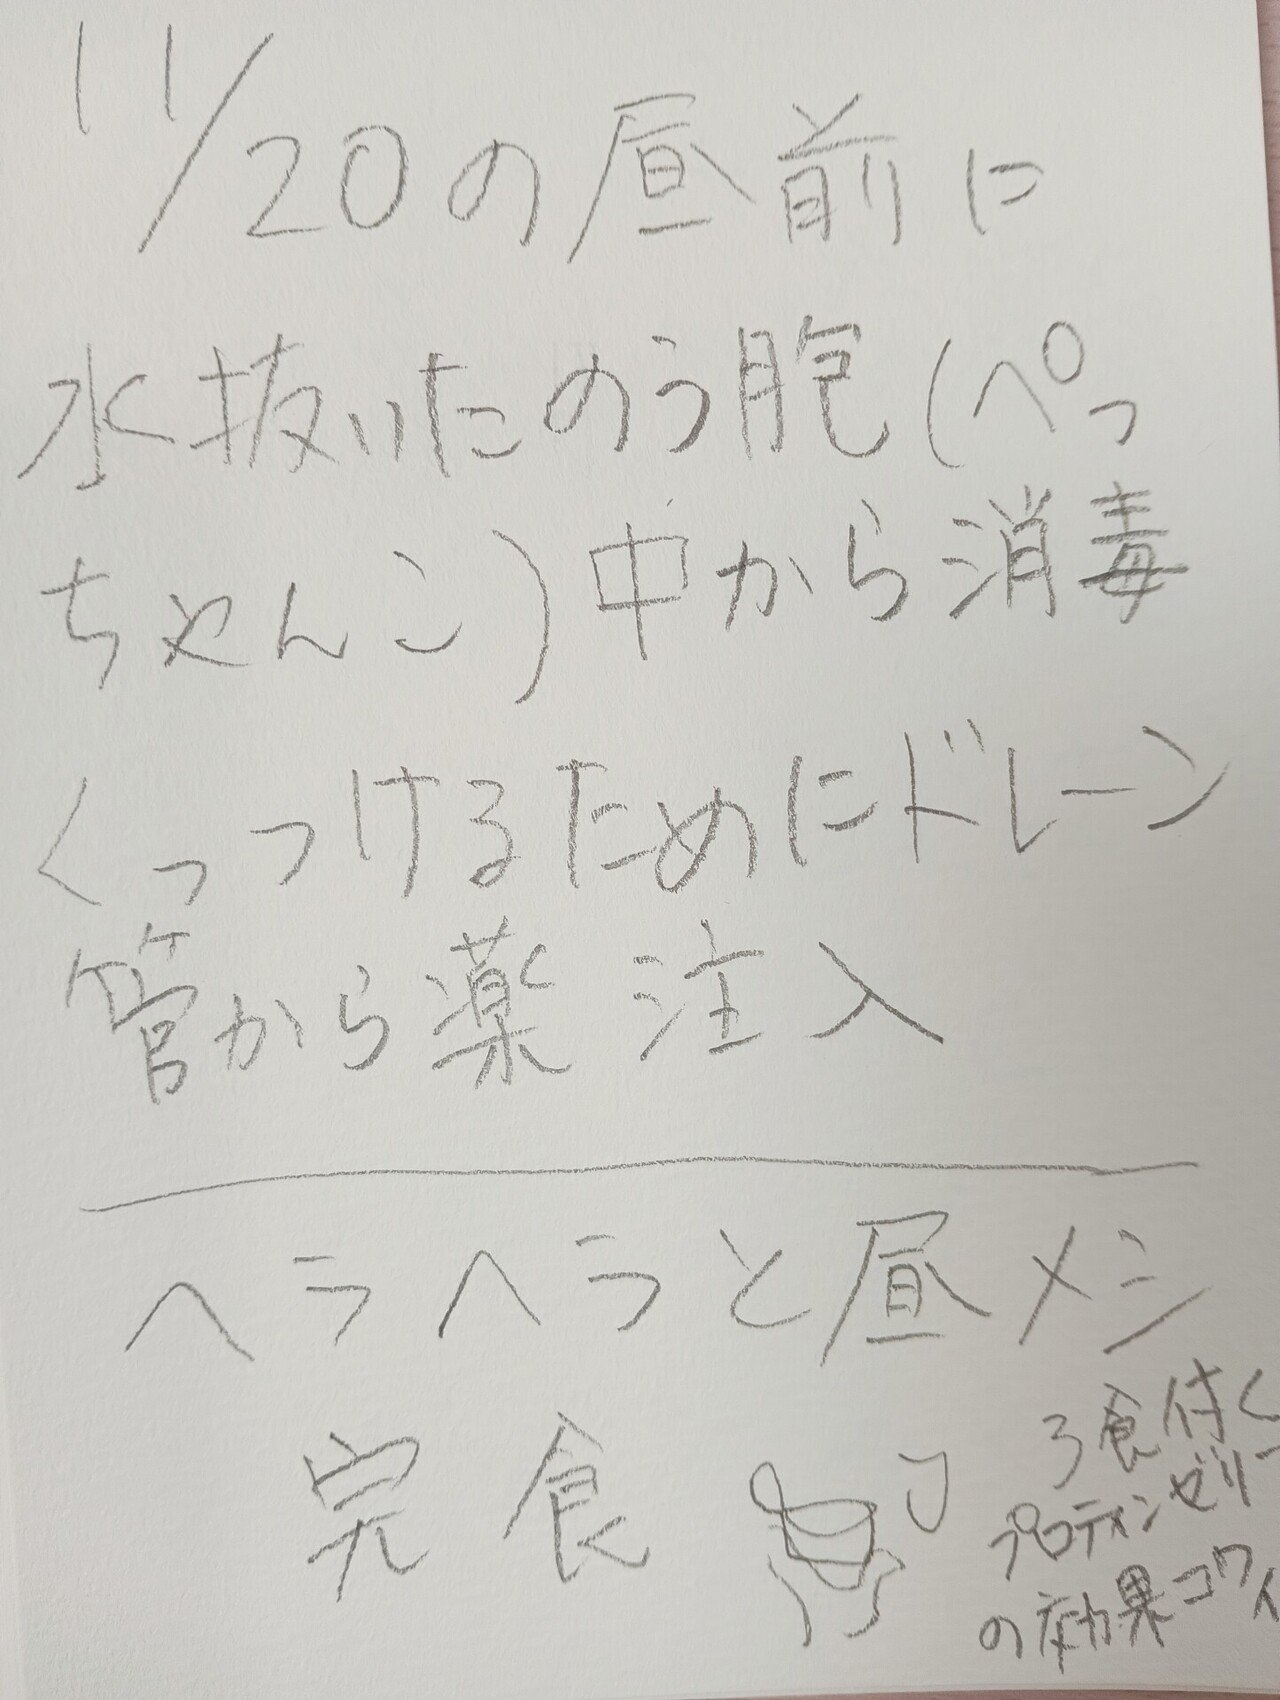 11/20の昼前に
水抜いたのう胞(ぺっ
ちゃんこ)中から消毒
くっつけるためにドレーン
管から薬注入
ヘラヘラと昼メシ
完食
3食付く
プロテインゼリー
の効果コワイ